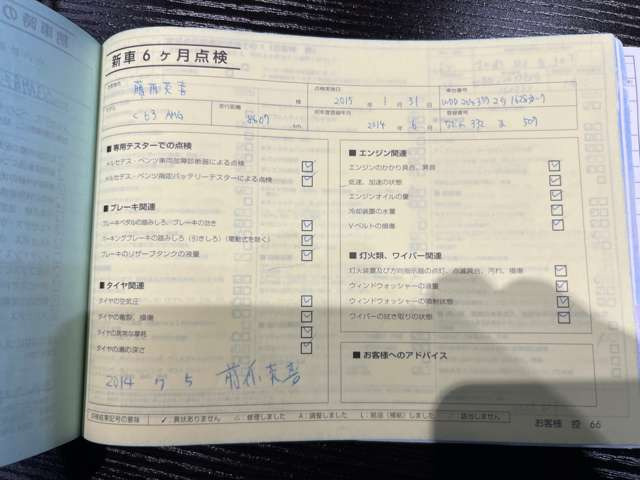 新車6ヶ月点検
お客様名
点検実施日
車台番号
様
2015 年 1 月 31 日
モデル
C63 AMG
走行距離
8607 km
初年度登録年月
2014 年 6 月
登録番号
332 509
■ 専用テスターでの点検
メルセデス・ベンツ車両故障診断器による点検
メルセデス・ベンツ指定バッテリーテスターによる点検
■ ブレーキ関連
ブレーキペダルの踏みしろ、ブレーキの効き
パーキングブレーキの踏みしろ（引きしろ）（電動式を除く）
ブレーキのリザーブタンクの液量
■ タイヤ関連
タイヤの空気圧
タイヤの亀裂、損傷
タイヤの異常な摩耗
タイヤの溝の深さ
2014 7 5
■ エンジン関連
エンジンのかかり具合、異音
低速、加速の状態
エンジンオイルの量
冷却装置の水量
V-ベルトの損傷
■ 灯火類、ワイパー関連
灯火装置及び方向指示器の点灯、点滅具合、汚れ、損傷
ウィンドウォッシャーの液量
ウィンドウォッシャーの噴射状態
ワイパーの拭き取りの状態
■ お客様へのアドバイス
点検結果記号の意味 ✓ 異状ありません △：修理しました A：調整しました L：給油（補給）しました ／：該当しません
お客様 控 66